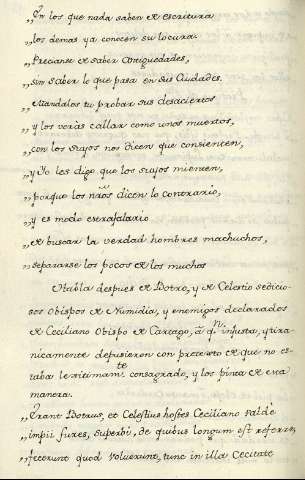 „En los que nada saben de escritura
„los demas ya conocen su locura.
„Precianse de saber Antiguedades,
„sin saber lo que pasa en sus Ciudades.
„Mandalos tu probar sus desaciertos
„y los verás callar como unos muertos,
„con los suyos nos dicen que consienten,
„y Yo les digo que los suyos mienten,
„porque los nr̃os dicen lo contrario,
„y es modo estrafalario
„de buscar la verdad hombres machuchos,
„separarse los pocos de los muchos
Habla despues de Dotro, y de Celestio sedicio-
sos obispos de Numidia, y enemigos declarados
de Ceciliano Obispo de Cartago, á qn injusta, y tira-
nicamente depusieron con pretexto de que no es-
taba lexitimamte consagrado, y los pinta de esta
manera.
„Erant Dotrus, et Celestius hostes Ceciliano valde
„impii fures, superbi, de quibus longum est referre,
„fecerunt quod voluerunt, tunc in illa Cecitate